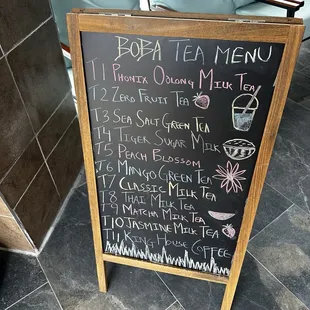 BOBA TEA MENU
T1 PHONIX OOLONG MILK TEA
T2 ZERO FRUIT TEA
T3 SEA SALT GREEN TEA
T4 TIGER SUGAR MILK
T5 PEACH BLOSSOM
T6 MANGO GREEN TEA
T7 CLASSIC MILK TEA
T8 THAI MILK TEA
T9 MATCHA MILK TEA
T10 JASMINE MILK TEA
T11 KING HOUSE COFFEE